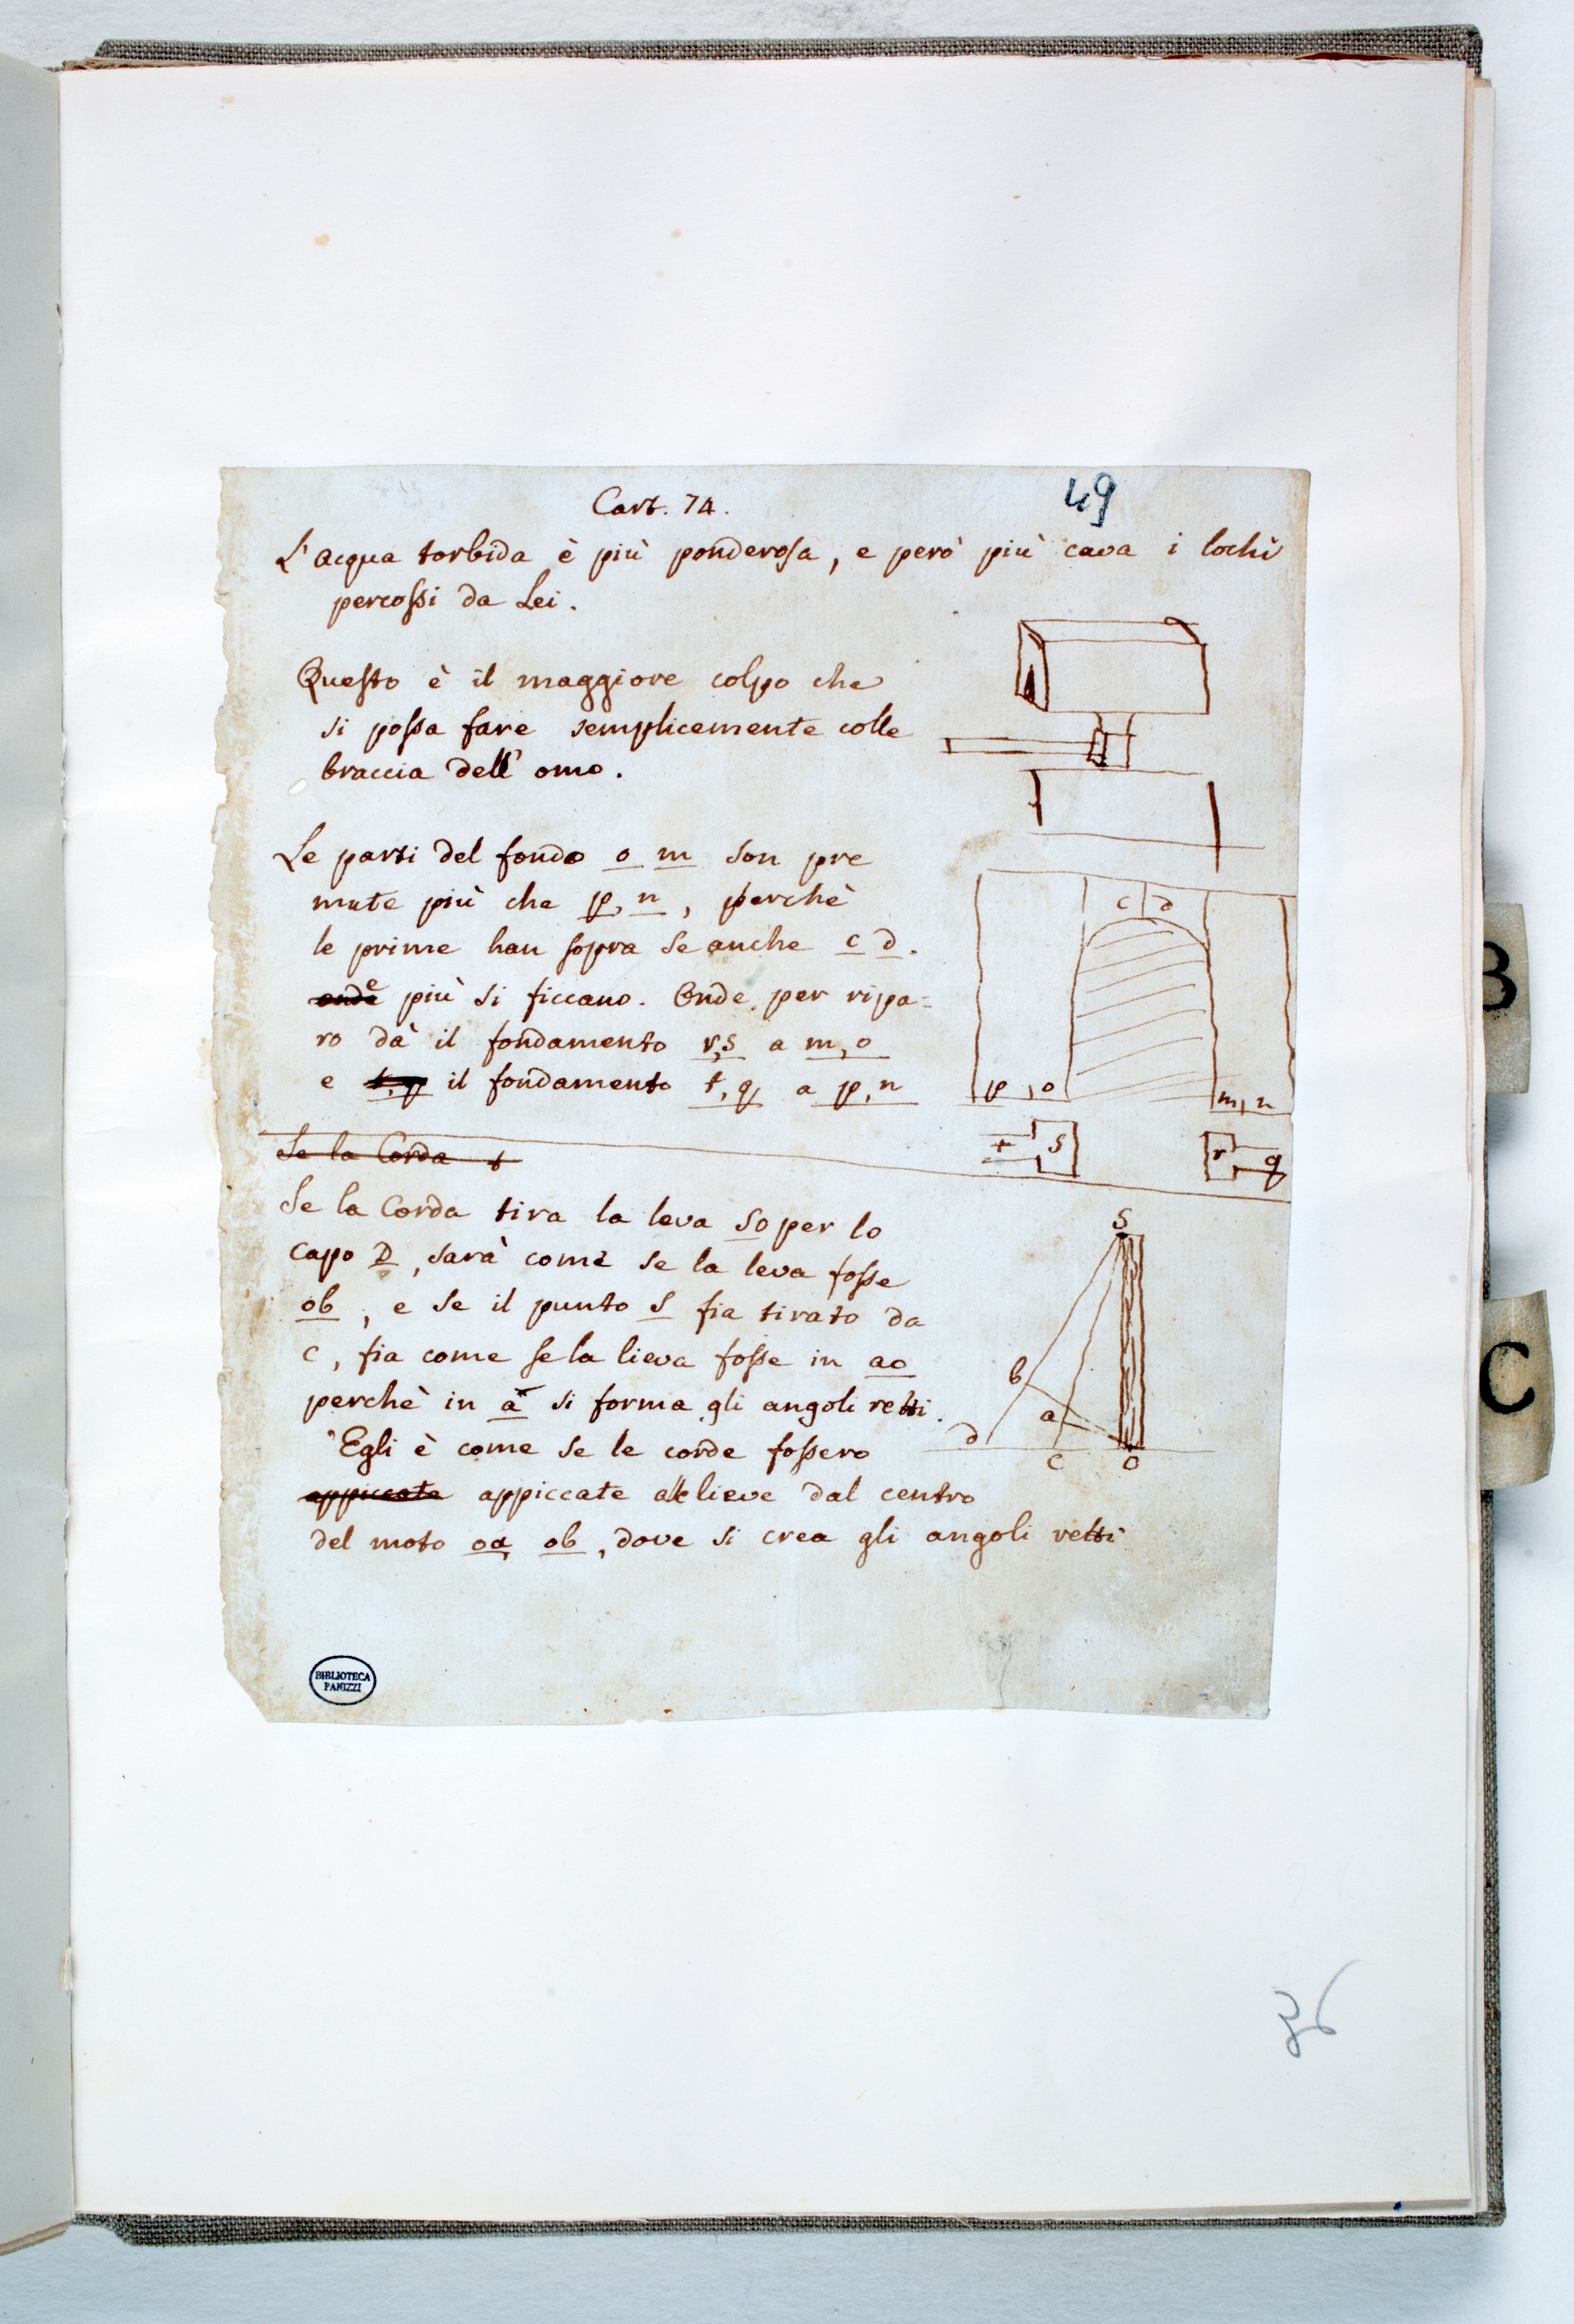 Cart. 74.
49
L'acqua torbida è più ponderosa, e però più cava i lochi
percossi da Lei.
Questo è il maggiore colpo che
si possa fare semplicemente colle
braccia dell' omo.
Le parti del fondo o m son pre
mute più che p, n, perchè
le prime han sopra se anche c d.
onde e più si ficcano. Onde per ripa=
ro dà il fondamento r,s a m,o
e t,q il fondamento t,q a p,n
c d
p, o
m, n
t s
r q
Se la Corda t
Se la Corda tira la leva so per lo
capo D, sarà come se la leva fosse
ob, e se il punto s fia tirato da
c, fia come se la lieva fosse in ao
perchè in a si forma gli angoli retti.
Egli è come se le corde fossero
appiccate appiccate alle lieve dal centro
del moto oa, ob, dove si crea gli angoli retti
S
b
a
d
c
o
BIBLIOTECA
PANIZZI
B
C
36